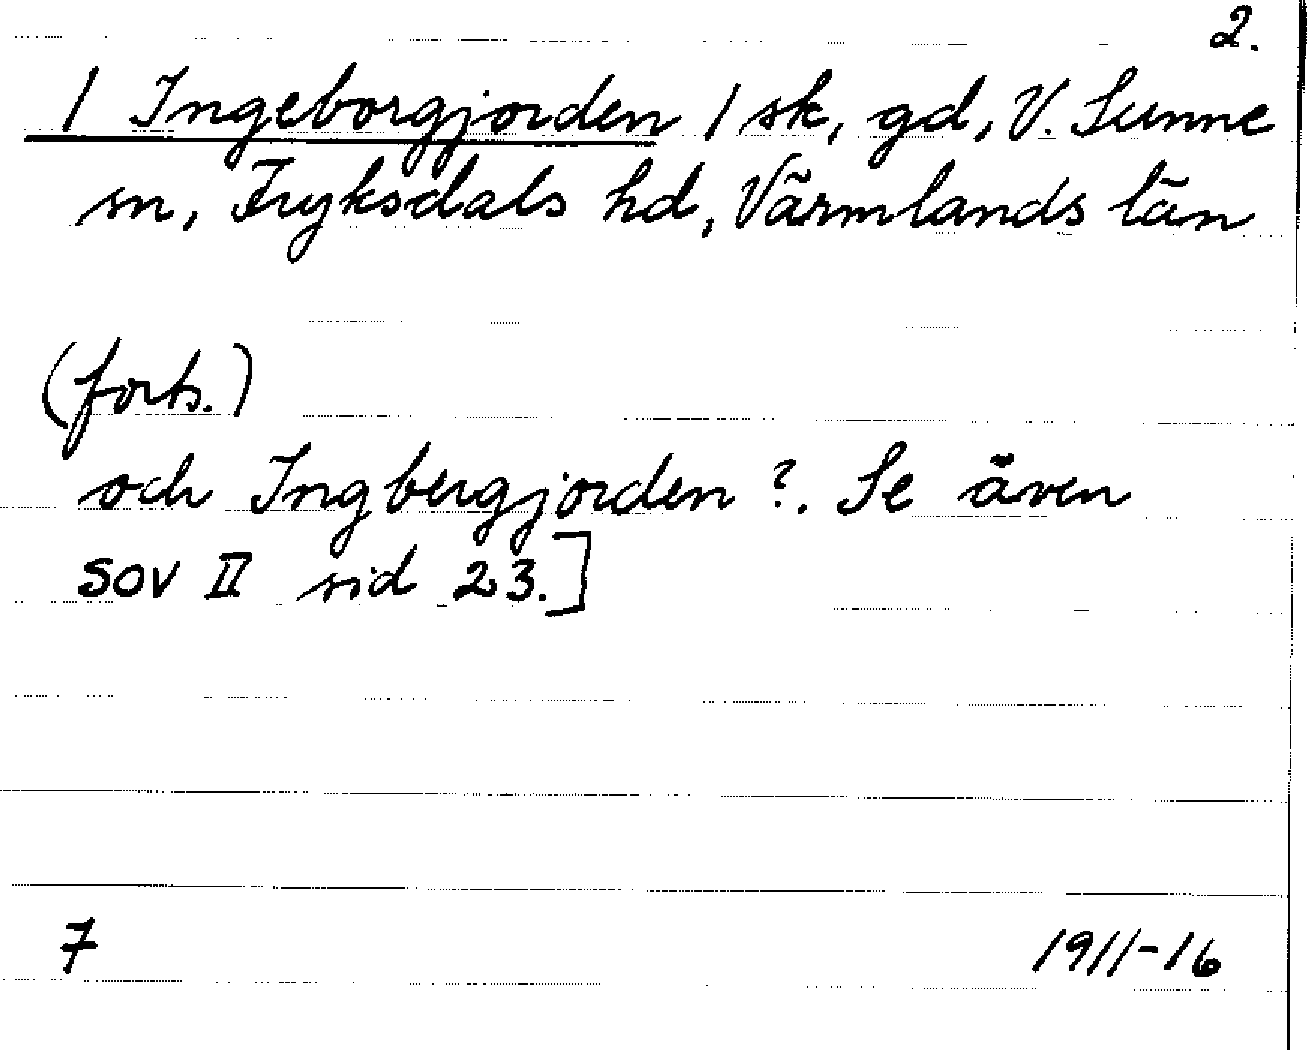 2.
/ Ingeborgjorden / sk, gd, V. Sunne
sn, Fryksdals hd, Värmlands län
(forts.)
och Ingbergjorden ?. Se även
SOV II sid 23.]
7 1911-16